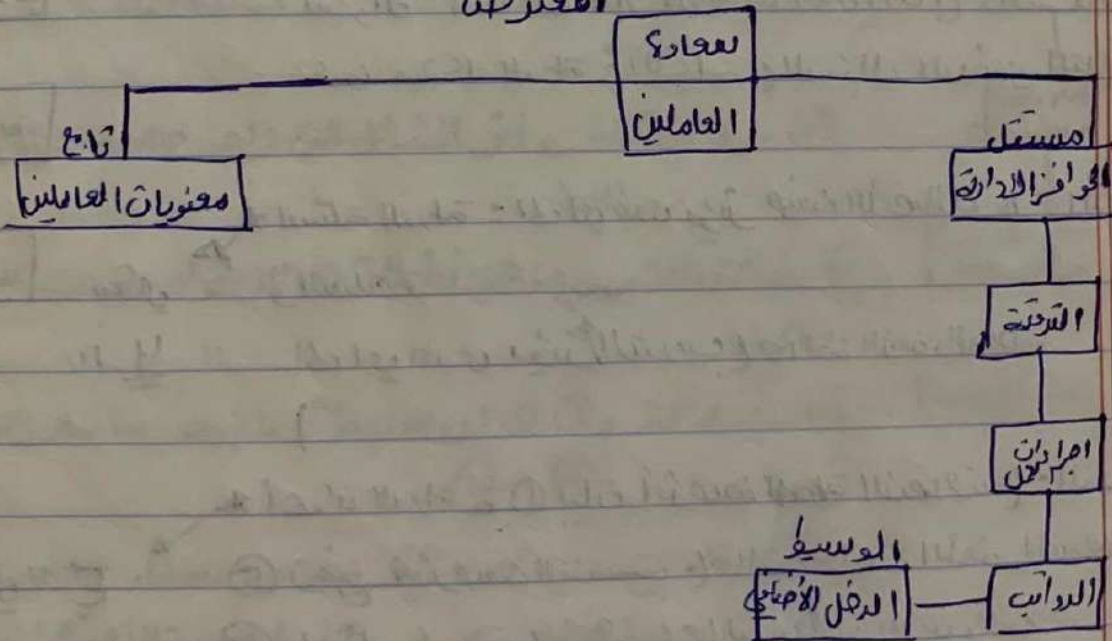 المعترض
سعادة
العاملين
تابع
معنويات العاملين
مستقل
الحوافز الادارية
الترقية
اجراءات العمل
الرواتب
الوسيط
الدخل الأضافي